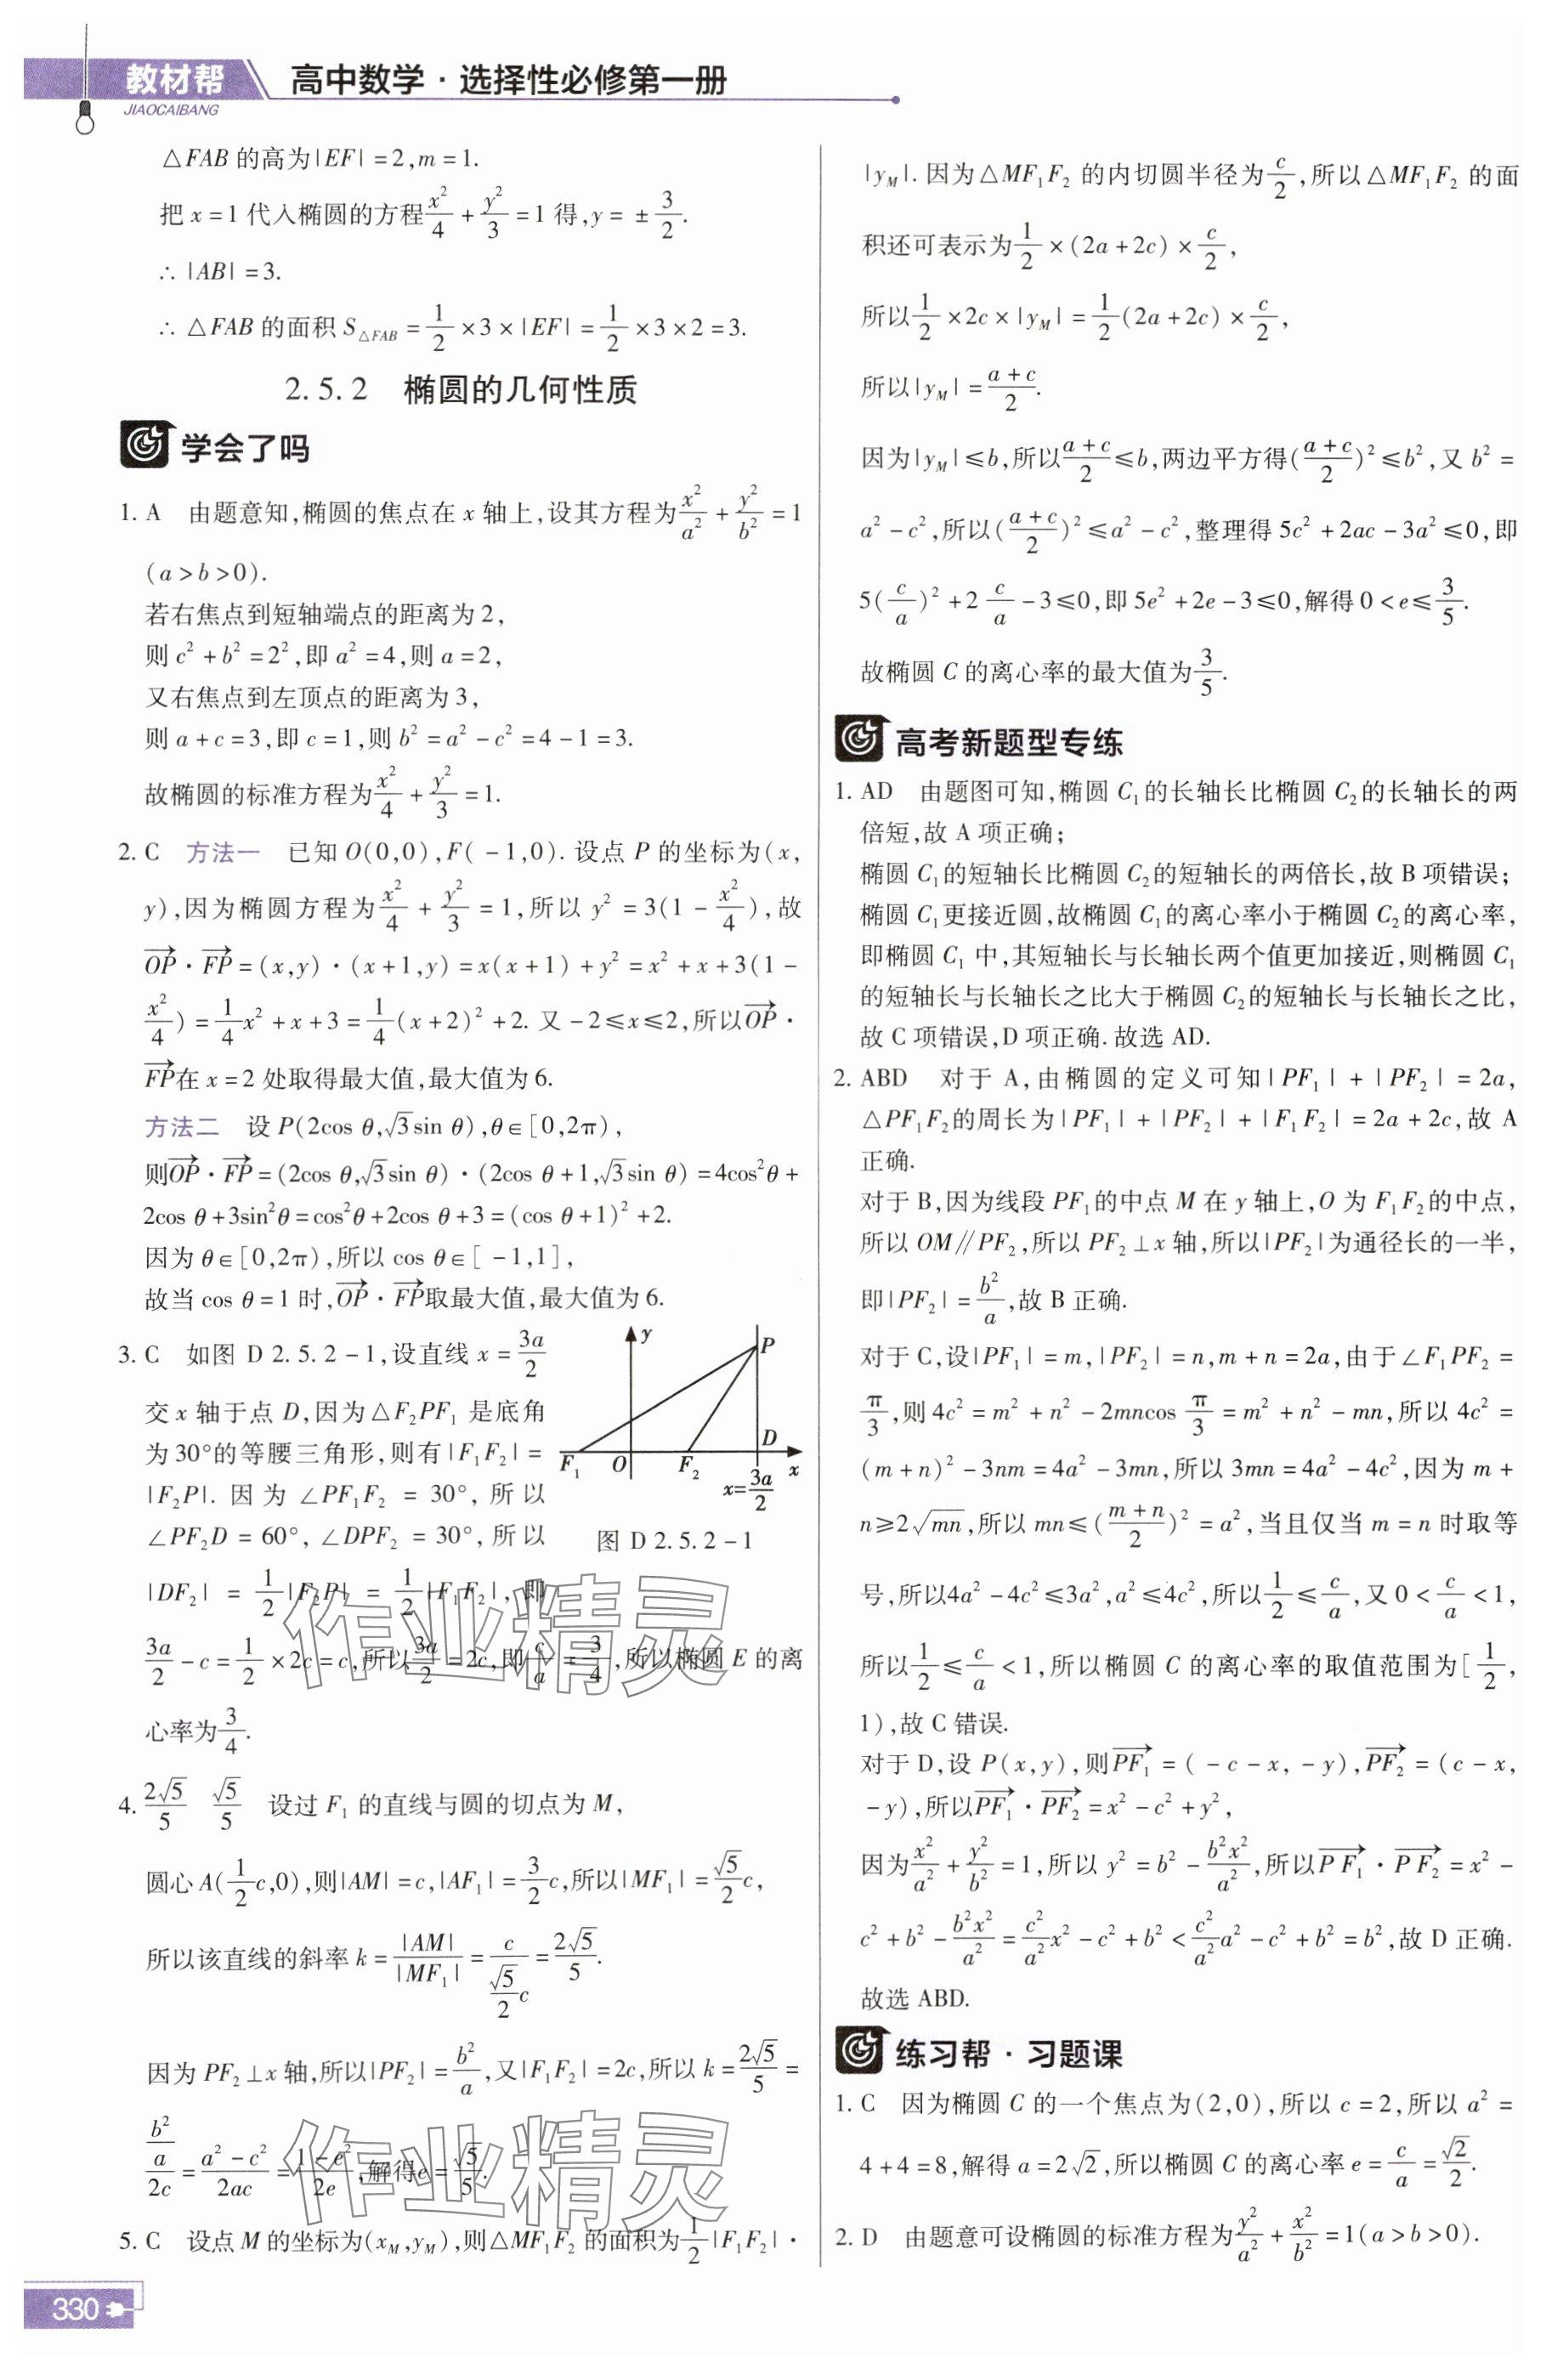 教材帮
JIAOCAIBANG
高中数学·选择性必修第一册
△FAB 的高为|EF| = 2, m = 1.
把 x = 1 代入椭圆的方程 x²/4 + y²/3 = 1 得, y = ± 3/2.
∴ |AB| = 3.
∴ △FAB 的面积 S△FAB = 1/2 × 3 × |EF| = 1/2 × 3 × 2 = 3.
2.5.2 椭圆的几何性质
学会了吗
1. A 由题意知,椭圆的焦点在 x 轴上,设其方程为 x²/a² + y²/b² = 1
(a > b > 0).
若右焦点到短轴端点的距离为 2,
则 c² + b² = 2²,即 a² = 4,则 a = 2,
又右焦点到左顶点的距离为 3,
则 a + c = 3,即 c = 1,则 b² = a² - c² = 4 - 1 = 3.
故椭圆的标准方程为 x²/4 + y²/3 = 1.
2. C 方法一 已知 O(0,0), F( -1,0). 设点 P 的坐标为(x,
y),因为椭圆方程为 x²/4 + y²/3 = 1,所以 y² = 3(1 - x²/4),故
→OP · →FP = (x,y) · (x+1,y) = x(x+1) + y² = x² + x + 3(1 -
x²/4) = 1/4 x² + x + 3 = 1/4 (x+2)² + 2. 又 -2 ≤ x ≤ 2,所以→OP ·
→FP在 x = 2 处取得最大值,最大值为 6.
方法二 设 P(2cos θ, √3sin θ), θ∈[0,2π),
则→OP · →FP = (2cos θ, √3sin θ) · (2cos θ + 1, √3sin θ) = 4cos²θ +
2cos θ + 3sin²θ = cos²θ + 2cos θ + 3 = (cos θ + 1)² + 2.
因为 θ∈[0,2π),所以 cos θ∈[ -1,1],
故当 cos θ = 1 时,→OP · →FP取最大值,最大值为 6.
3. C 如图 D 2.5.2 - 1,设直线 x = 3a/2
交 x 轴于点 D,因为△F₂PF₁ 是底角
为 30°的等腰三角形,则有|F₁F₂| =
|F₂P|. 因为 ∠PF₁F₂ = 30°, 所以
∠PF₂D = 60°, ∠DPF₂ = 30°, 所以
|DF₂| = 1/2 |F₂P| = 1/2 |F₁F₂|, 即
3a/2 - c = 1/2 × 2c = c,所以 3a/2 = 2c,即 c/a = 3/4,所以椭圆 E 的离
心率为 3/4.
y
P
D
F₁
O
F₂
x
x=3a/2
图 D 2.5.2 - 1
4. 2√5/5 √5/5 设过 F₁ 的直线与圆的切点为 M,
圆心 A(1/2 c,0),则|AM| = c, |AF₁| = 3/2 c,所以|MF₁| = √5/2 c,
所以该直线的斜率 k = |AM|/|MF₁| = c/(√5/2 c) = 2√5/5.
因为 PF₂⊥x 轴,所以|PF₂| = b²/a,又|F₁F₂| = 2c,所以 k = 2√5/5 =
(b²/a)/2c = (a² - c²)/2ac = (1 - e²)/2e,解得e = √5/5.
5. C 设点 M 的坐标为(x_M, y_M),则△MF₁F₂ 的面积为 1/2 |F₁F₂| ·
330
|y_M|. 因为△MF₁F₂ 的内切圆半径为 c/2,所以△MF₁F₂ 的面
积还可表示为 1/2 × (2a + 2c) × c/2,
所以 1/2 × 2c × |y_M| = 1/2 (2a + 2c) × c/2,
所以|y_M| = (a + c)/2.
因为|y_M| ≤ b,所以 (a + c)/2 ≤ b,两边平方得((a + c)/2)² ≤ b²,又 b² =
a² - c²,所以((a + c)/2)² ≤ a² - c²,整理得 5c² + 2ac - 3a² ≤ 0,即
5(c/a)² + 2 c/a - 3 ≤ 0,即 5e² + 2e - 3 ≤ 0,解得 0 < e ≤ 3/5.
故椭圆 C 的离心率的最大值为 3/5.
高考新题型专练
1. AD 由题图可知,椭圆 C₁的长轴长比椭圆 C₂的长轴长的两
倍短,故 A 项正确;
椭圆 C₁的短轴长比椭圆 C₂的短轴长的两倍长,故 B 项错误;
椭圆 C₁更接近圆,故椭圆 C₁的离心率小于椭圆 C₂的离心率,
即椭圆 C₁ 中,其短轴长与长轴长两个值更加接近,则椭圆 C₁
的短轴长与长轴长之比大于椭圆 C₂的短轴长与长轴长之比,
故 C 项错误,D 项正确. 故选 AD.
2. ABD 对于 A, 由椭圆的定义可知|PF₁| + |PF₂| = 2a,
△PF₁F₂的周长为|PF₁| + |PF₂| + |F₁F₂| = 2a + 2c,故 A
正确.
对于 B,因为线段 PF₁的中点 M 在 y 轴上,O 为 F₁F₂的中点,
所以 OM∥PF₂,所以 PF₂⊥x 轴,所以|PF₂|为通径长的一半,
即|PF₂| = b²/a,故 B 正确.
对于 C,设|PF₁| = m, |PF₂| = n, m + n = 2a,由于∠F₁PF₂ =
π/3,则 4c² = m² + n² - 2mncos π/3 = m² + n² - mn,所以 4c² =
(m + n)² - 3nm = 4a² - 3mn,所以 3mn = 4a² - 4c²,因为 m +
n ≥ 2√mn,所以 mn ≤ ((m + n)/2)² = a²,当且仅当 m = n 时取等
号,所以4a² - 4c² ≤ 3a², a² ≤ 4c²,所以 1/2 ≤ c/a,又 0 < c/a < 1,
所以 1/2 ≤ c/a < 1,所以椭圆 C 的离心率的取值范围为[1/2,
1),故 C 错误.
对于 D,设 P(x,y),则→PF₁ = ( -c - x, -y), →PF₂ = (c - x,
-y),所以→PF₁ · →PF₂ = x² - c² + y²,
因为 x²/a² + y²/b² = 1,所以 y² = b² - b²x²/a²,所以→PF₁ · →PF₂ = x² -
c² + b² - b²x²/a² = c²/a² x² - c² + b² < c²/a² a² - c² + b² = b²,故 D 正确.
故选 ABD.
练习帮·习题课
1. C 因为椭圆 C 的一个焦点为(2,0),所以 c = 2,所以 a² =
4 + 4 = 8,解得 a = 2√2,所以椭圆 C 的离心率 e = c/a = √2/2.
2. D 由题意可设椭圆的标准方程为 y²/a² + x²/b² = 1(a > b > 0).
作业精灵
作业精灵